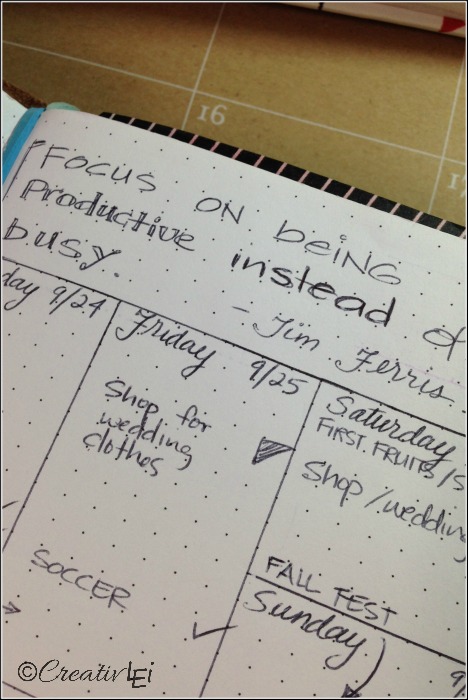 16
Focus on being
Productive instead of
busy.
- Jim Ferris
day 9/24
Friday 9/25
Shop for
wedding
clothes
SOCCER
Saturday
FIRST FRUITS/S
Shop/wedding
FALL TEST
Sunday
9
©CreativLEi